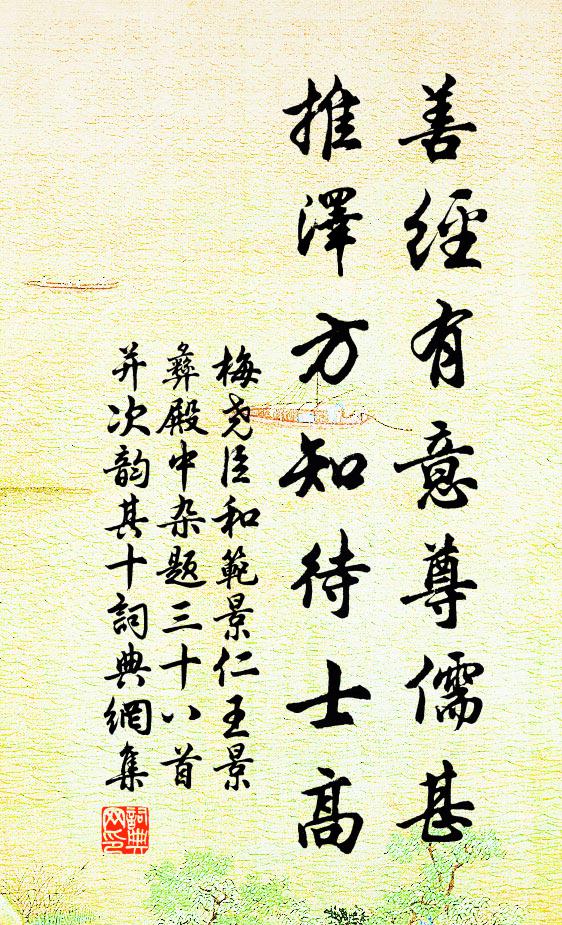 善經有意尊儒甚
推澤方知待士高
梅尧臣和範景仁王景
彝殿中杂题三十八首
并次韵其十詞典網集
詞典
网印